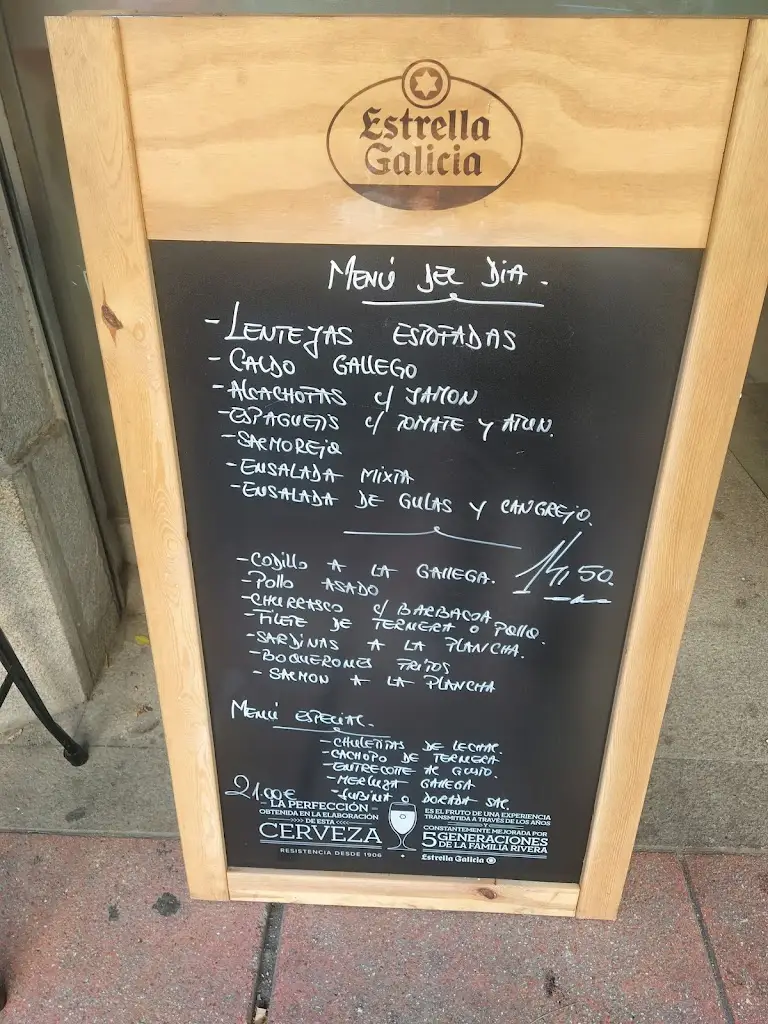 Estrella
Galicia
MENÚ DEL DIA.
- LENTEJAS ESTOFADAS
- CALDO GALLEGO
- ALCACHOFAS C/ JAMON
- ESPAGUETIS C/ TOMATE Y ATUN.
- SALMOREJO
- ENSALADA MIXTA
- ENSALADA DE GULAS Y CANGREJO.
14,50
- CODILLO A LA GALLEGA.
- POLLO ASADO
- CHURRASCO C/ BARBACOA
- FILETE DE TERNERA O POLLO.
- SARDINAS A LA PLANCHA.
- BOQUERONES FRITOS
- SALMON A LA PLANCHA
MENÚ ESPECIAL.
- CHULETITAS DE LECHAL.
- CACHOPO DE TERNERA
- ENTRECOTTE AL GUSTO.
- MERLUZA GALLEGA
- LUBINA O DORADA SAL.
21.00€
- LA PERFECCIÓN -
OBTENIDA EN LA ELABORACIÓN
>>>>> DE ESTA <<<<<
CERVEZA
RESISTENCIA DESDE 1906
ES EL FRUTO DE UNA EXPERIENCIA
TRANSMITIDA A TRAVÉS DE LOS AÑOS
Y
CONSTANTEMENTE MEJORADA POR
5 GENERACIONES
DE LA FAMILIA RIVERA
Estrella Galicia